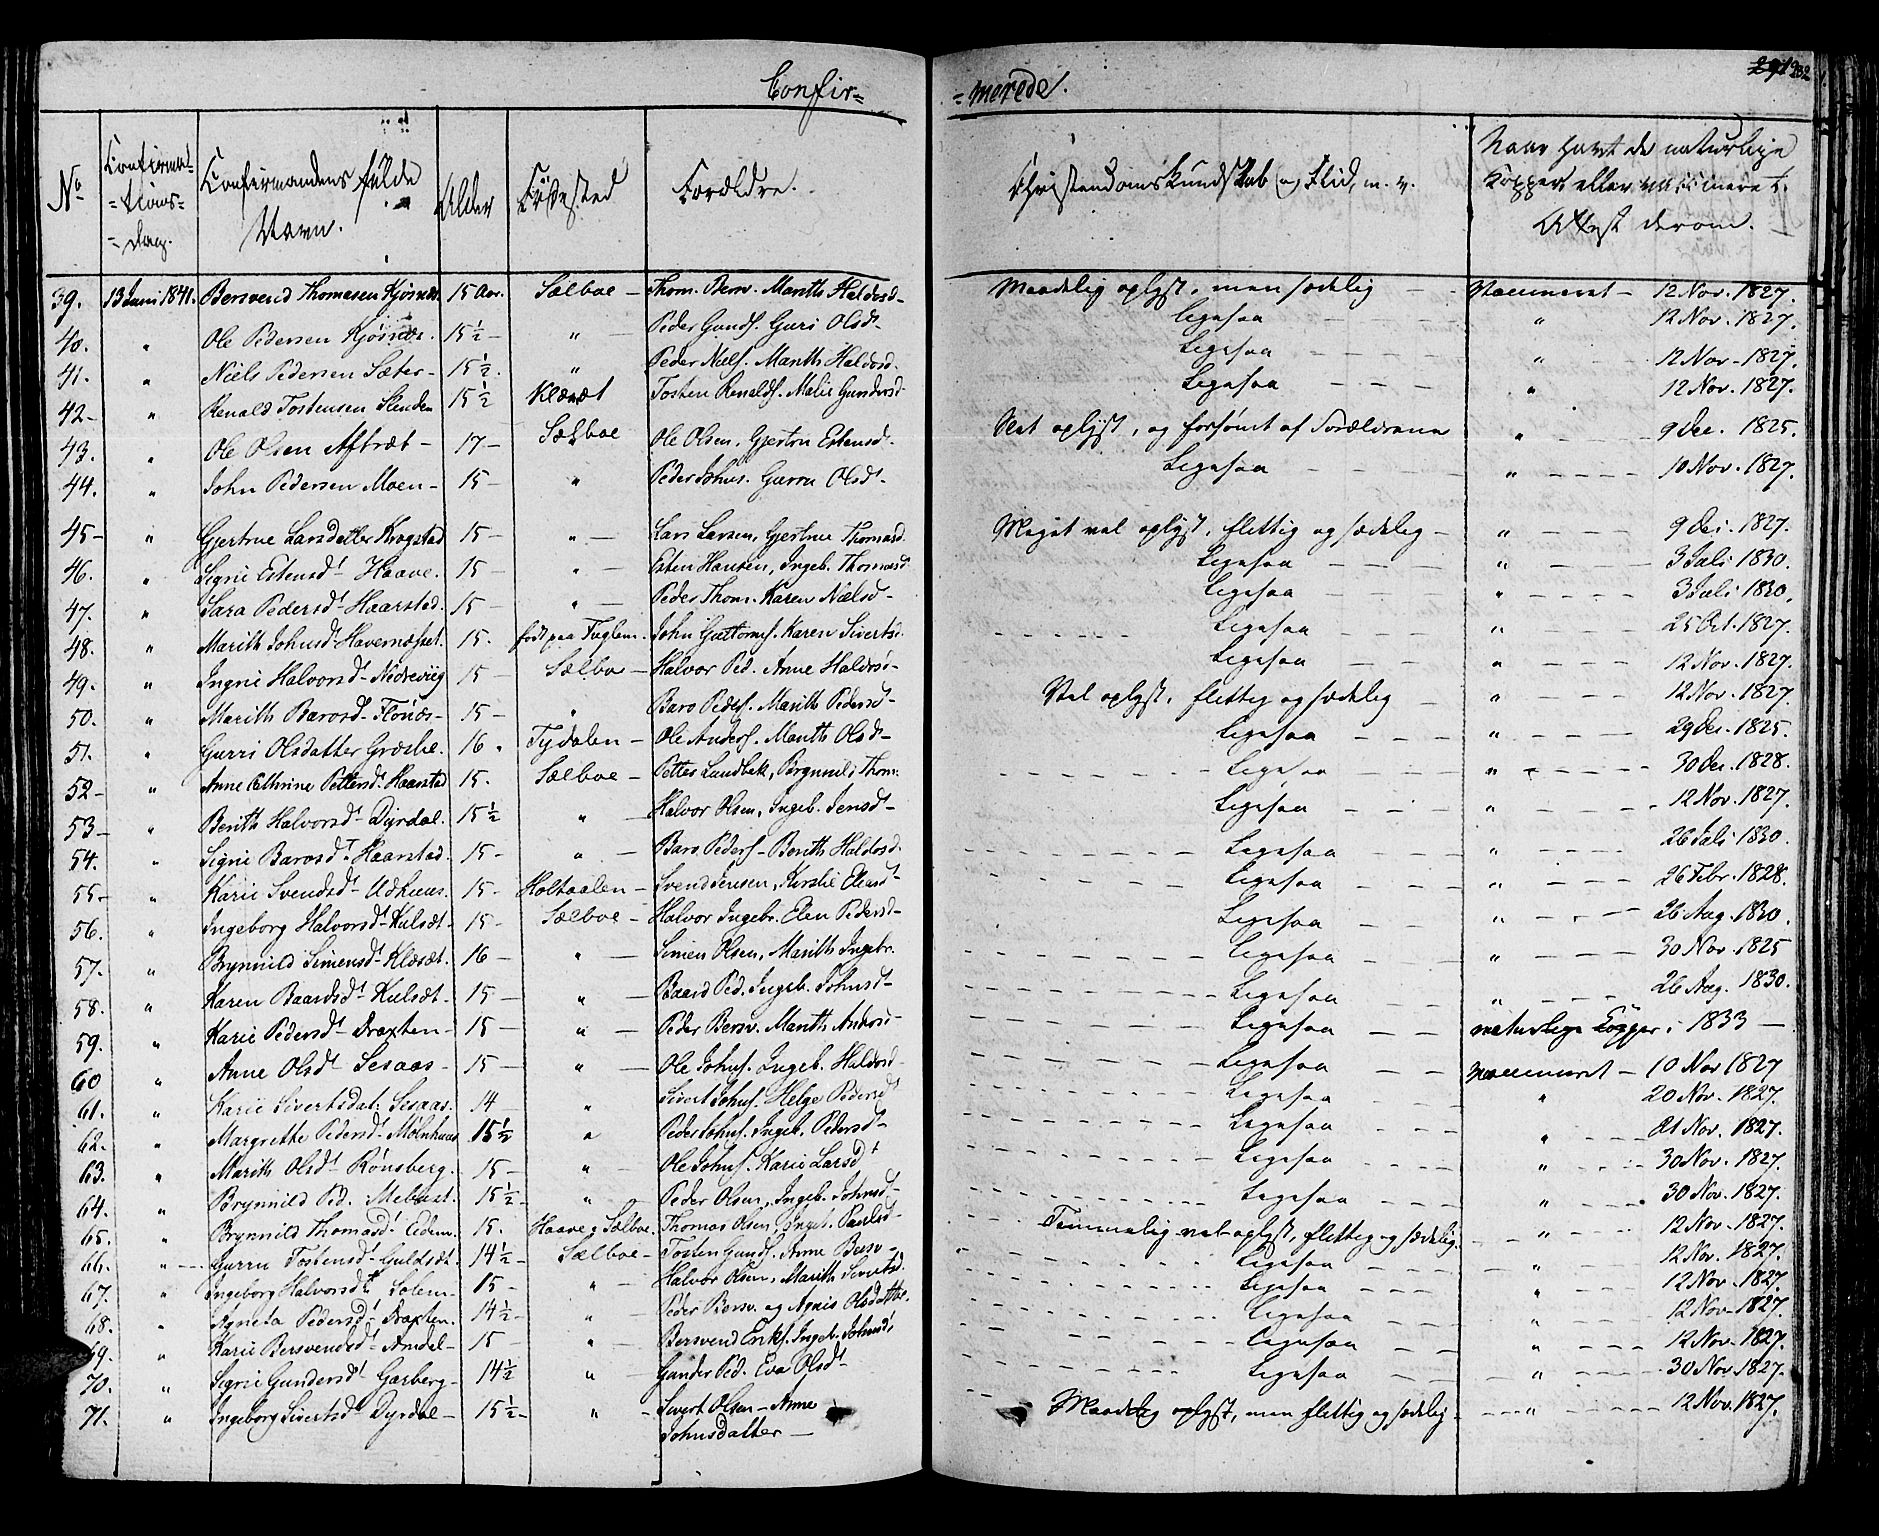 Confir=
=merede.
232
No
Confirmat-
=tions-
=dag.
Confirmandens fulde
Navn.
Alder
Födested
Forældre.
Christendoms Kundskab og Flid, m. v.
Naar havt de naturlige
Kopper eller vaccineret.
Attest derom.
39. 13 Juni 1841. Bersvend Thomesen Kjösnæs 15 Aar. Sælboe - Thom. Bersv. Marith Haldosd- Maadelig oplyst, men sædelig - Vaccineret - 12 Nov. 1827.
40. " Ole Pedersen Kjösnæs. 15½ - " - Peder Gunds. Guri Olsdt- Ligesaa - - - " 12 Nov. 1827.
41. " Niels Pedersen Sæter- 15½. " Peder Niels. Marith Haldosd. Ligesaa - - - " 12 Nov- 1827.
42- " Renald Tostensen Slenden 15½ Klæsæt Tosten Renalds. Malie Gundersd- Ligesaa - - - " 12 Nov. 1827.
43. " Ole Olsen Aftræt- 17- Sælboe Ole Olsen, Gjertru Estensdt- Slet oplyst, og forsömt af Forældrene " - - - 9 Dec. 1825.
44. " John Pedersen Moen- 15- " Peder Johns. Gurru Olsdt- Ligesaa - - - " - - - 10 Nov. 1827.
45- " Gjertrue Larsdatter Krogstad 15- " - Lars Larsen, Gjertrue Thomasd. Meget vel oplyst, flittig og sædelig - " - - - 9 Dec. 1827.
46. " Sigrie Estensdt- Haave. 15- " - Esten Hansen, Ingeb. Thomasdt Ligesaa - - - " - - - 3 Juli 1830.
47. " Sara Pedersdt- Haarstad. 15- " - Peder Thom. Karen Nielsd- Ligesaa - - - " - - - 3 Juli 1830.
48. " Marith Johnsdt- Havernæsset. 15. födt paa Fuglem. John Guttorms. Karen Sivertsd. Ligesaa - - - " - - - 25 Oct. 1827.
49. " Ingrie Halvorsdt- Nedreviig 15- Sælboe - Halvor Ped. Anne Haldosd- Ligesaa - - - " - - - 12 Nov. 1827.
50. " Marith Barosd- Flönæs- 15- " Baro Peders. Marith Pedersd- Vel oplyst, flittig og sædelig - " - - - 12 Nov. 1827.
51. " Gurri Olsdatter Græsli. 16. Tydalen - Ole Anders. Marith Olsdt- Ligesaa - - - " - - - 29 Dec. 1825.
52- " Anne Cathrine Pettersdt Haarstad 15. Sælboe - Petter Lundbek, Brynnild Thom. Ligesaa - - - " - - - 30 Dec. 1828.
53- " Berith Halvorsdt- Dyrdal. 15½ " - Halvor Olsen, Ingeb. Jensdt- Ligesaa - - - " - - - 12 Nov. 1827.
54. " Sigrie Barosdt- Haarstad. 15- " - Baro Peders- Berith Haldosd. Ligesaa - - - " - - - 26 Juli 1830.
55- " Karie Svendsdt- Udhuus. 15- Holtaalen - Svend Jensen, Kirstie Elensdt- Ligesaa - - - " - - - 26 Febr. 1828.
56. " Ingeborg Halvorsdt- Kulsæt- 15- Sælboe - Halvor Ingebr. Elen Pedersd- Ligesaa - - - " - - - 26 Aug. 1830.
57. " Brynnild Simensdt- Klæsæt. 16- " - Simen Olsen, Marith Ingebr. Ligesaa - - - " - - - 30 Nov. 1825
58. " Karen Baardsdt- Kulsæt- 15- " - Baard Ped. Ingeb. Johnsdt- Ligesaa - - - " - - - 26 Aug. 1830.
59. " Karie Pedersdt Draxten- 15- " - Peder Bersv. Marith Andersd- Ligesaa - - naturlige Kopper i 1833 -
60 " Anne Olsdt- Sesaas- 15- " - Ole Johns. Ingeb. Haldosd- Ligesaa - - Vaccineret - 10 Nov 1827
61. " Karie Sivertsdat. Sesaas. 14- " Sivert Johns. Helge Pedersd Ligesaa - - - " 20 Nov. 1827.
62. " Margrethe Pedersdt- Mölnhuus 15½ " Peder Johns. Ingeb. Pedersdt- Ligesaa - - - " - - - 21 Nov. 1827.
63. " Marith Olsdt Rönsberg. 15- " - Ole Johns. Karie Larsdt Ligesaa - - - " - - - 30 Nov. 1827.
64. " Brynnild Ped. Mebust. 15½- " - Peder Olsen, Ingeb. Johnsdt- Ligesaa - - - " 30 Nov. 1827.
65. " Brynnild Thomasdt Eidem. 15. Haave, Sælboe. Thomas Olsen Ingeb. Paulsdt- Temmelig vel oplyst, flittig og sædelig. - " - - 12 Nov. 1827.
66. " Gurru Tostensdt- Guldsæt. 14½- Sælboe - Tosten Gunds. Anne Bersv- Ligesaa - - - " 12 Nov. 1827.
67. " Ingeborg Halvorsdt Solem- 15- " - Halvor Olsen, Marith Sivertsd. Ligesaa - - - " 12 Nov. 1827.
68. " Agneta Pedersdt- Draxten. 14½- " Peder Bersv. og Agnis Olsdatter. Ligesaa - - - " 12 Nov- 1827.
69. " Karie Bersvendsdt- Amdal- 15 " - Bersvend Eriks. Ingeb. Johnsdt. Ligesaa - - - " - - - 12 Nov. 1827.
70. " Sigrie Gundersdt Garberg- 14½ " - Gunder Ped. Eva Olsdt- Ligesaa - - - " - - - 30 Nov. 1827.
71. " Ingeborg Sivertsdt- Dyrdal- 15½- " - Sivert Olsen- Anne Maadelig oplyst, men flittig og sædelig - - - " - - - 12 Nov. 1827.
Johnsdatter -